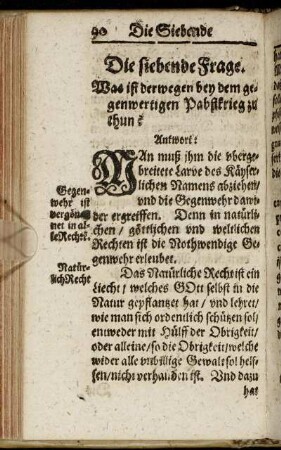 90 Die Siebende
Die siebende Frage.
Was ist derwegen bey dem ge-
genwertigen Pabstkrieg zu
thun?
Antwort:
MAn muß ihm die vberge-
breitete Larve des Käyser-
lichen Namens abziehen/
vnd die Gegenwehr dawi-
der ergreiffen. Denn in natürli-
chen/ göttlichen vnd weltlichen
Rechten ist die Nothwendige Ge-
genwehr erleubet.
Gegen-
wehr ist
vergön-
net in al-
le Rechte.
Natür-
lich Recht
Das Natürliche Recht ist ein
Liecht/ welches GOtt selbst in die
Natur gepflantzet hat/ vnd lehret/
wie man sich ordentlich schützen sol/
entweder mit Hülff der Obrigkeit/
oder alleine/ so die Obrigkeit/ welche
wider alle vnbillige Gewalt sol helf-
fen/ nicht verhanden ist. Vnd dazu
hat